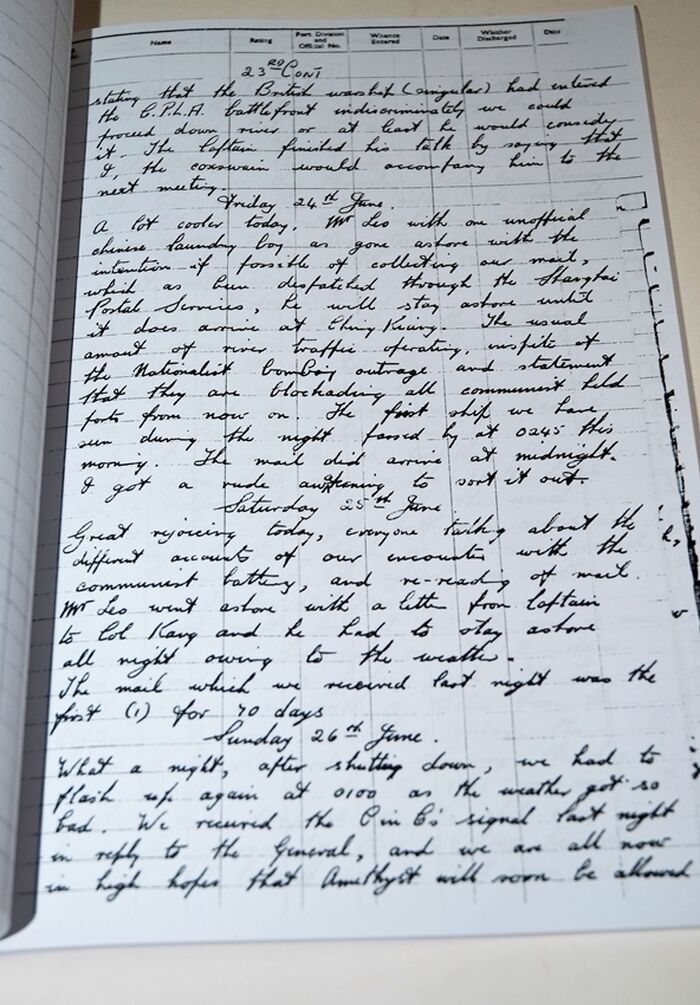 Name Rating Port Division and Official No. Whence Entered Date Whither Discharged Date
23RD CONT
stating that the British warship (singular) had entered
the C.P.L.A. battlefront indiscriminately we could
proceed down river or at least he would consider
it. The Captain finished his talk by saying that
I, the coxswain would accompany him to the
next meeting.
Friday 24th June.
A lot cooler today, Mr Leo with one unofficial
chinese laundry boy as gone ashore with the
intention if possible of collecting our mail,
which as been despatched through the Shanghai
Postal Services, he will stay ashore until
it does arrive at Ching Kiang. The usual
amount of river traffic operating, inspite of
the Nationalist bombing outrage and statement
that they are blockading all communist held
ports from now on. The first ship we have
seen during the night passed by at 0245 this
morning. The mail did arrive at midnight.
I got a rude awakening to sort it out.
Saturday 25th June
Great rejoicing today, everyone talking about the
different accounts of our encounter with the
communist battery, and re-reading of mail.
Mr Leo went ashore with a letter from Captain
to Col Kang and he had to stay ashore
all night owing to the weather.
The mail which we received last night was the
first (1) for 70 days
Sunday 26th June.
What a night, after shutting down, we had to
flash up again at 0100 as the weather got so
bad. We received the C in C's signal last night
in reply to the General, and we are all now
in high hopes that Amethyst will soon be allowed